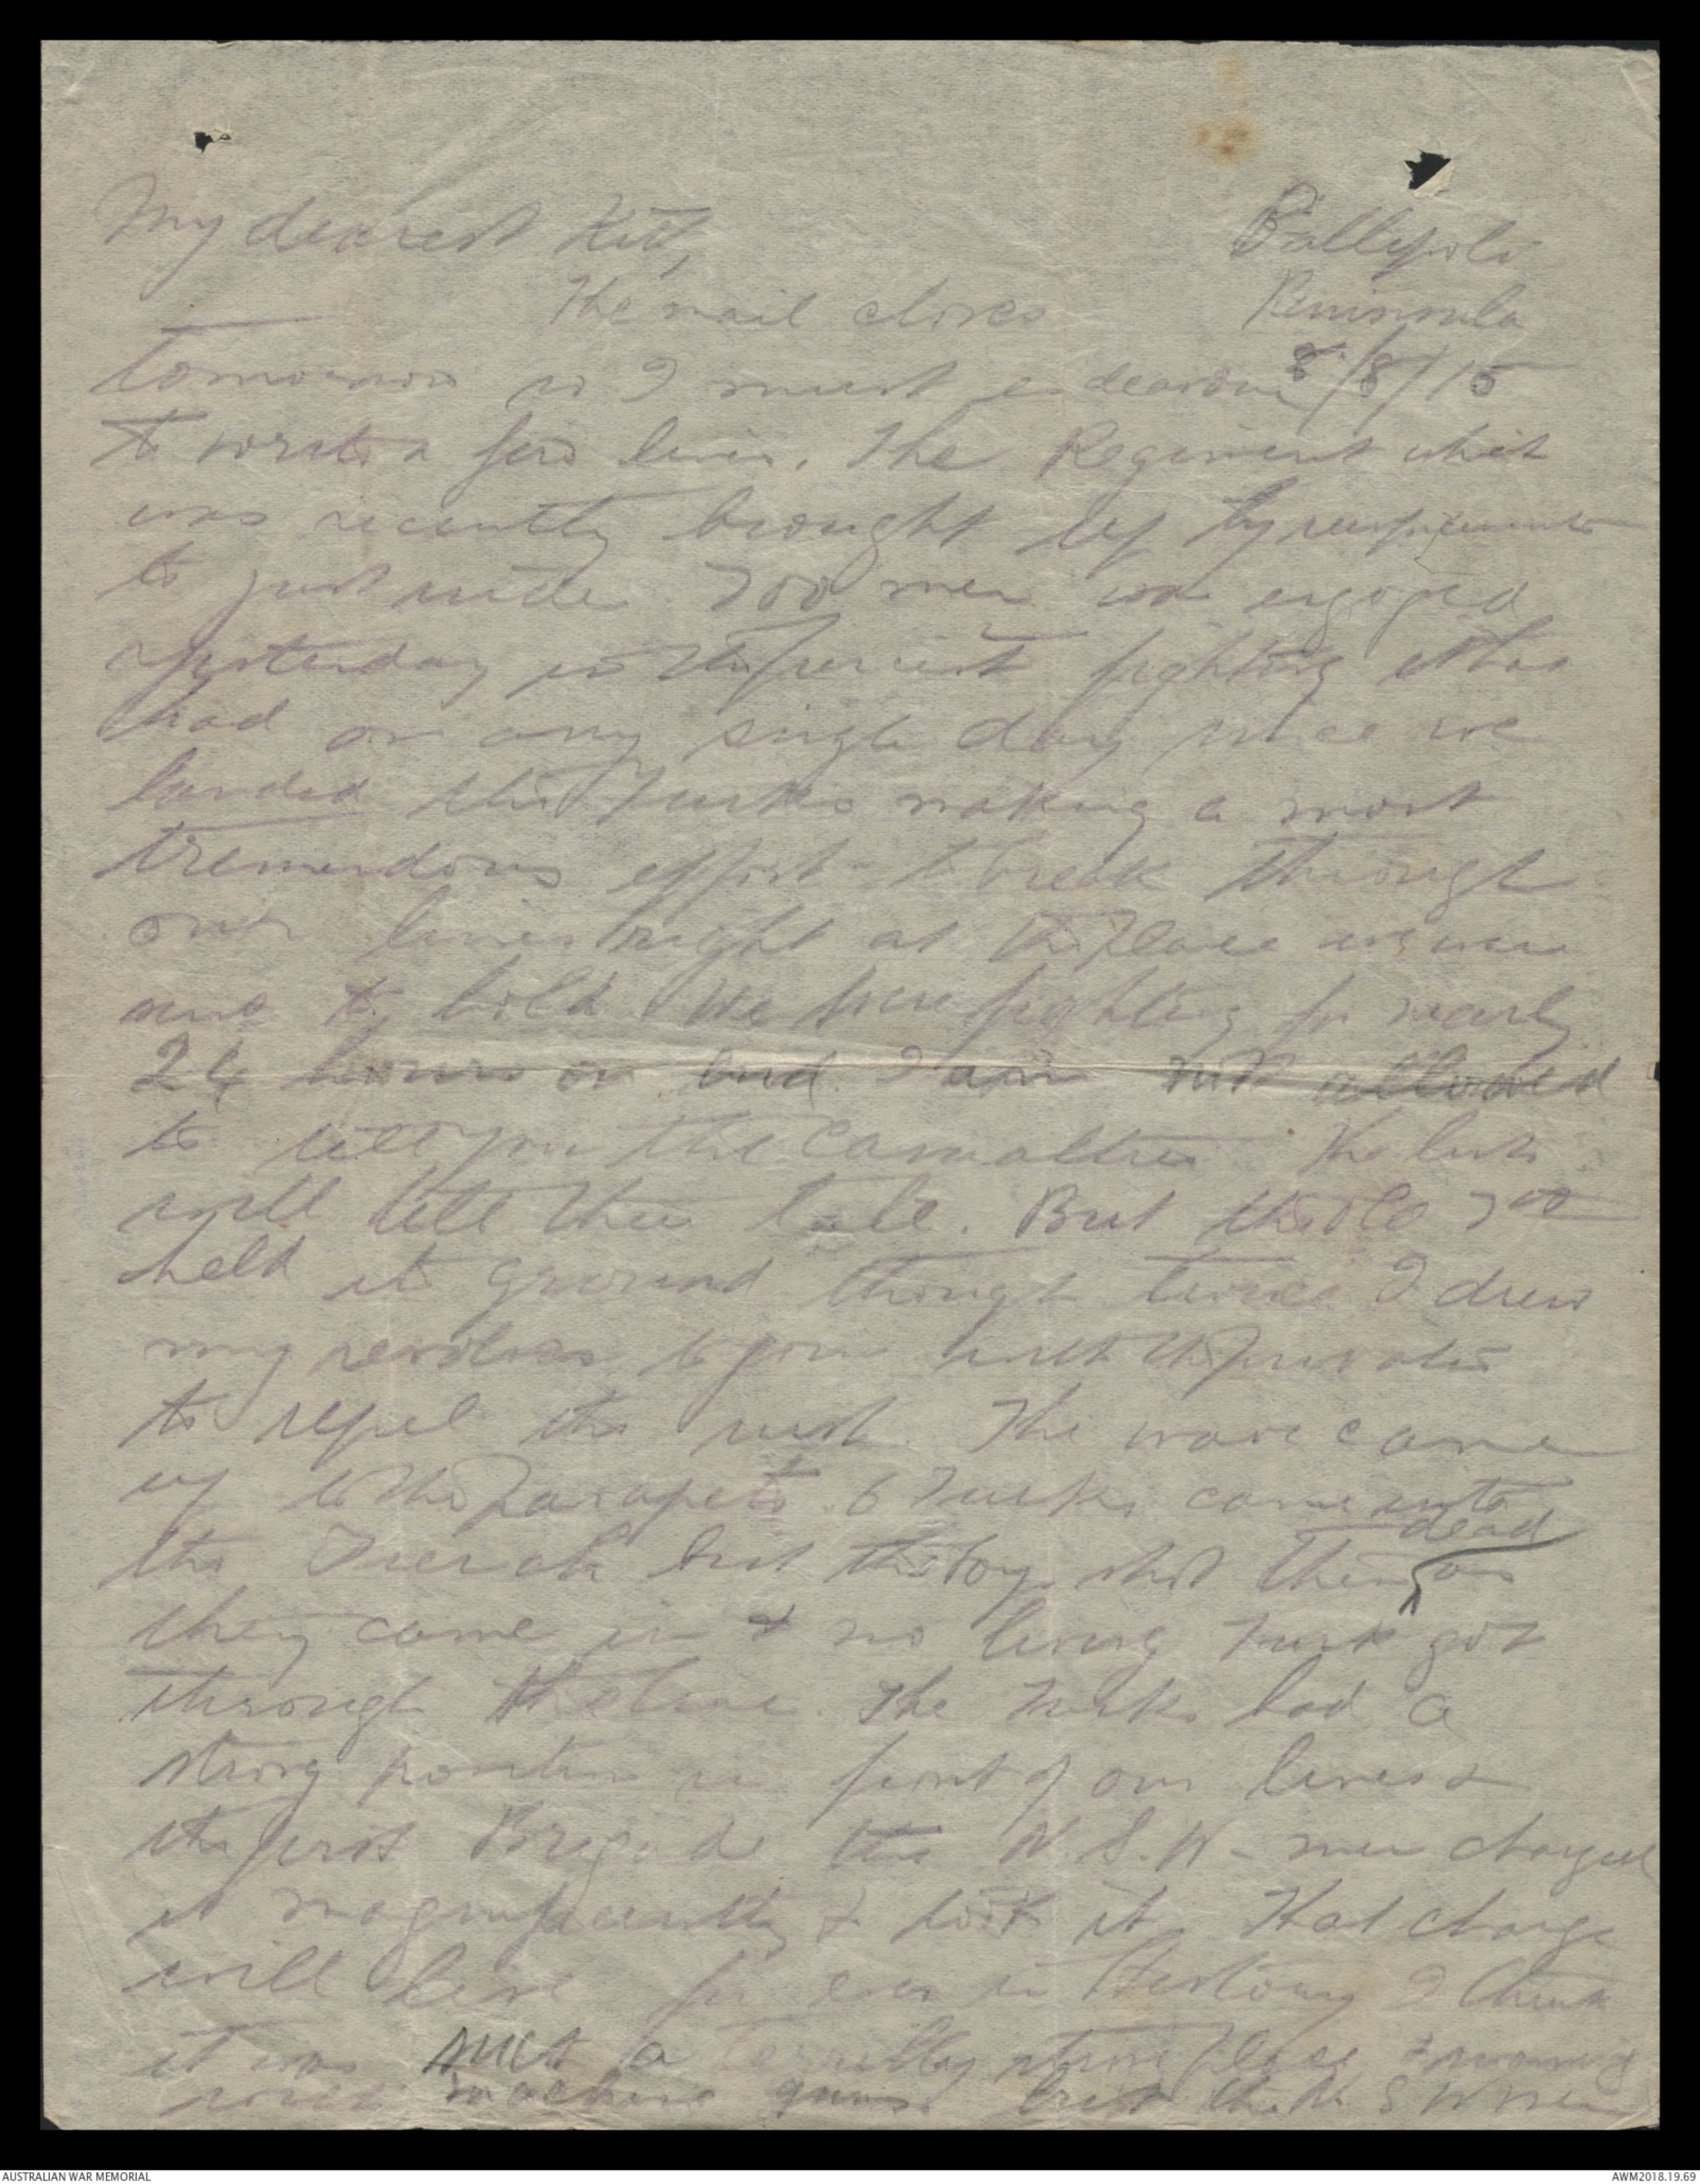 My dearest Kit,
Gallipoli
Peninsula
8/8/15
The mail closes
tomorrow so I must endeavour
to write a few lines. The Regiment which
was recently brought up by reinforcements
to just under 700 men was engaged
yesterday in the fiercest fighting it has
had on any single day since we
landed the Turks making a most
tremendous effort to break through
our lines right at the place we were
sent to hold. We were fighting for nearly
24 hours on end. I am not allowed
to tell you the casualties. The lists
will tell their tale. But the old 7th
held its ground though twice I drew
my revolver to join with the privates
to repel the rush. The wave came
up to the parapets. 6 Turks came into
the Trench but the boys shot them dead as
they came in & no living Turk got
through the line. The Turks had a
strong position in front of our lines &
the first Brigade the N.S.W. men charged
it magnificently & took it. That charge
will live for ever in History I think
it was such a terribly strong place & swarming
with machine guns but the N S W men